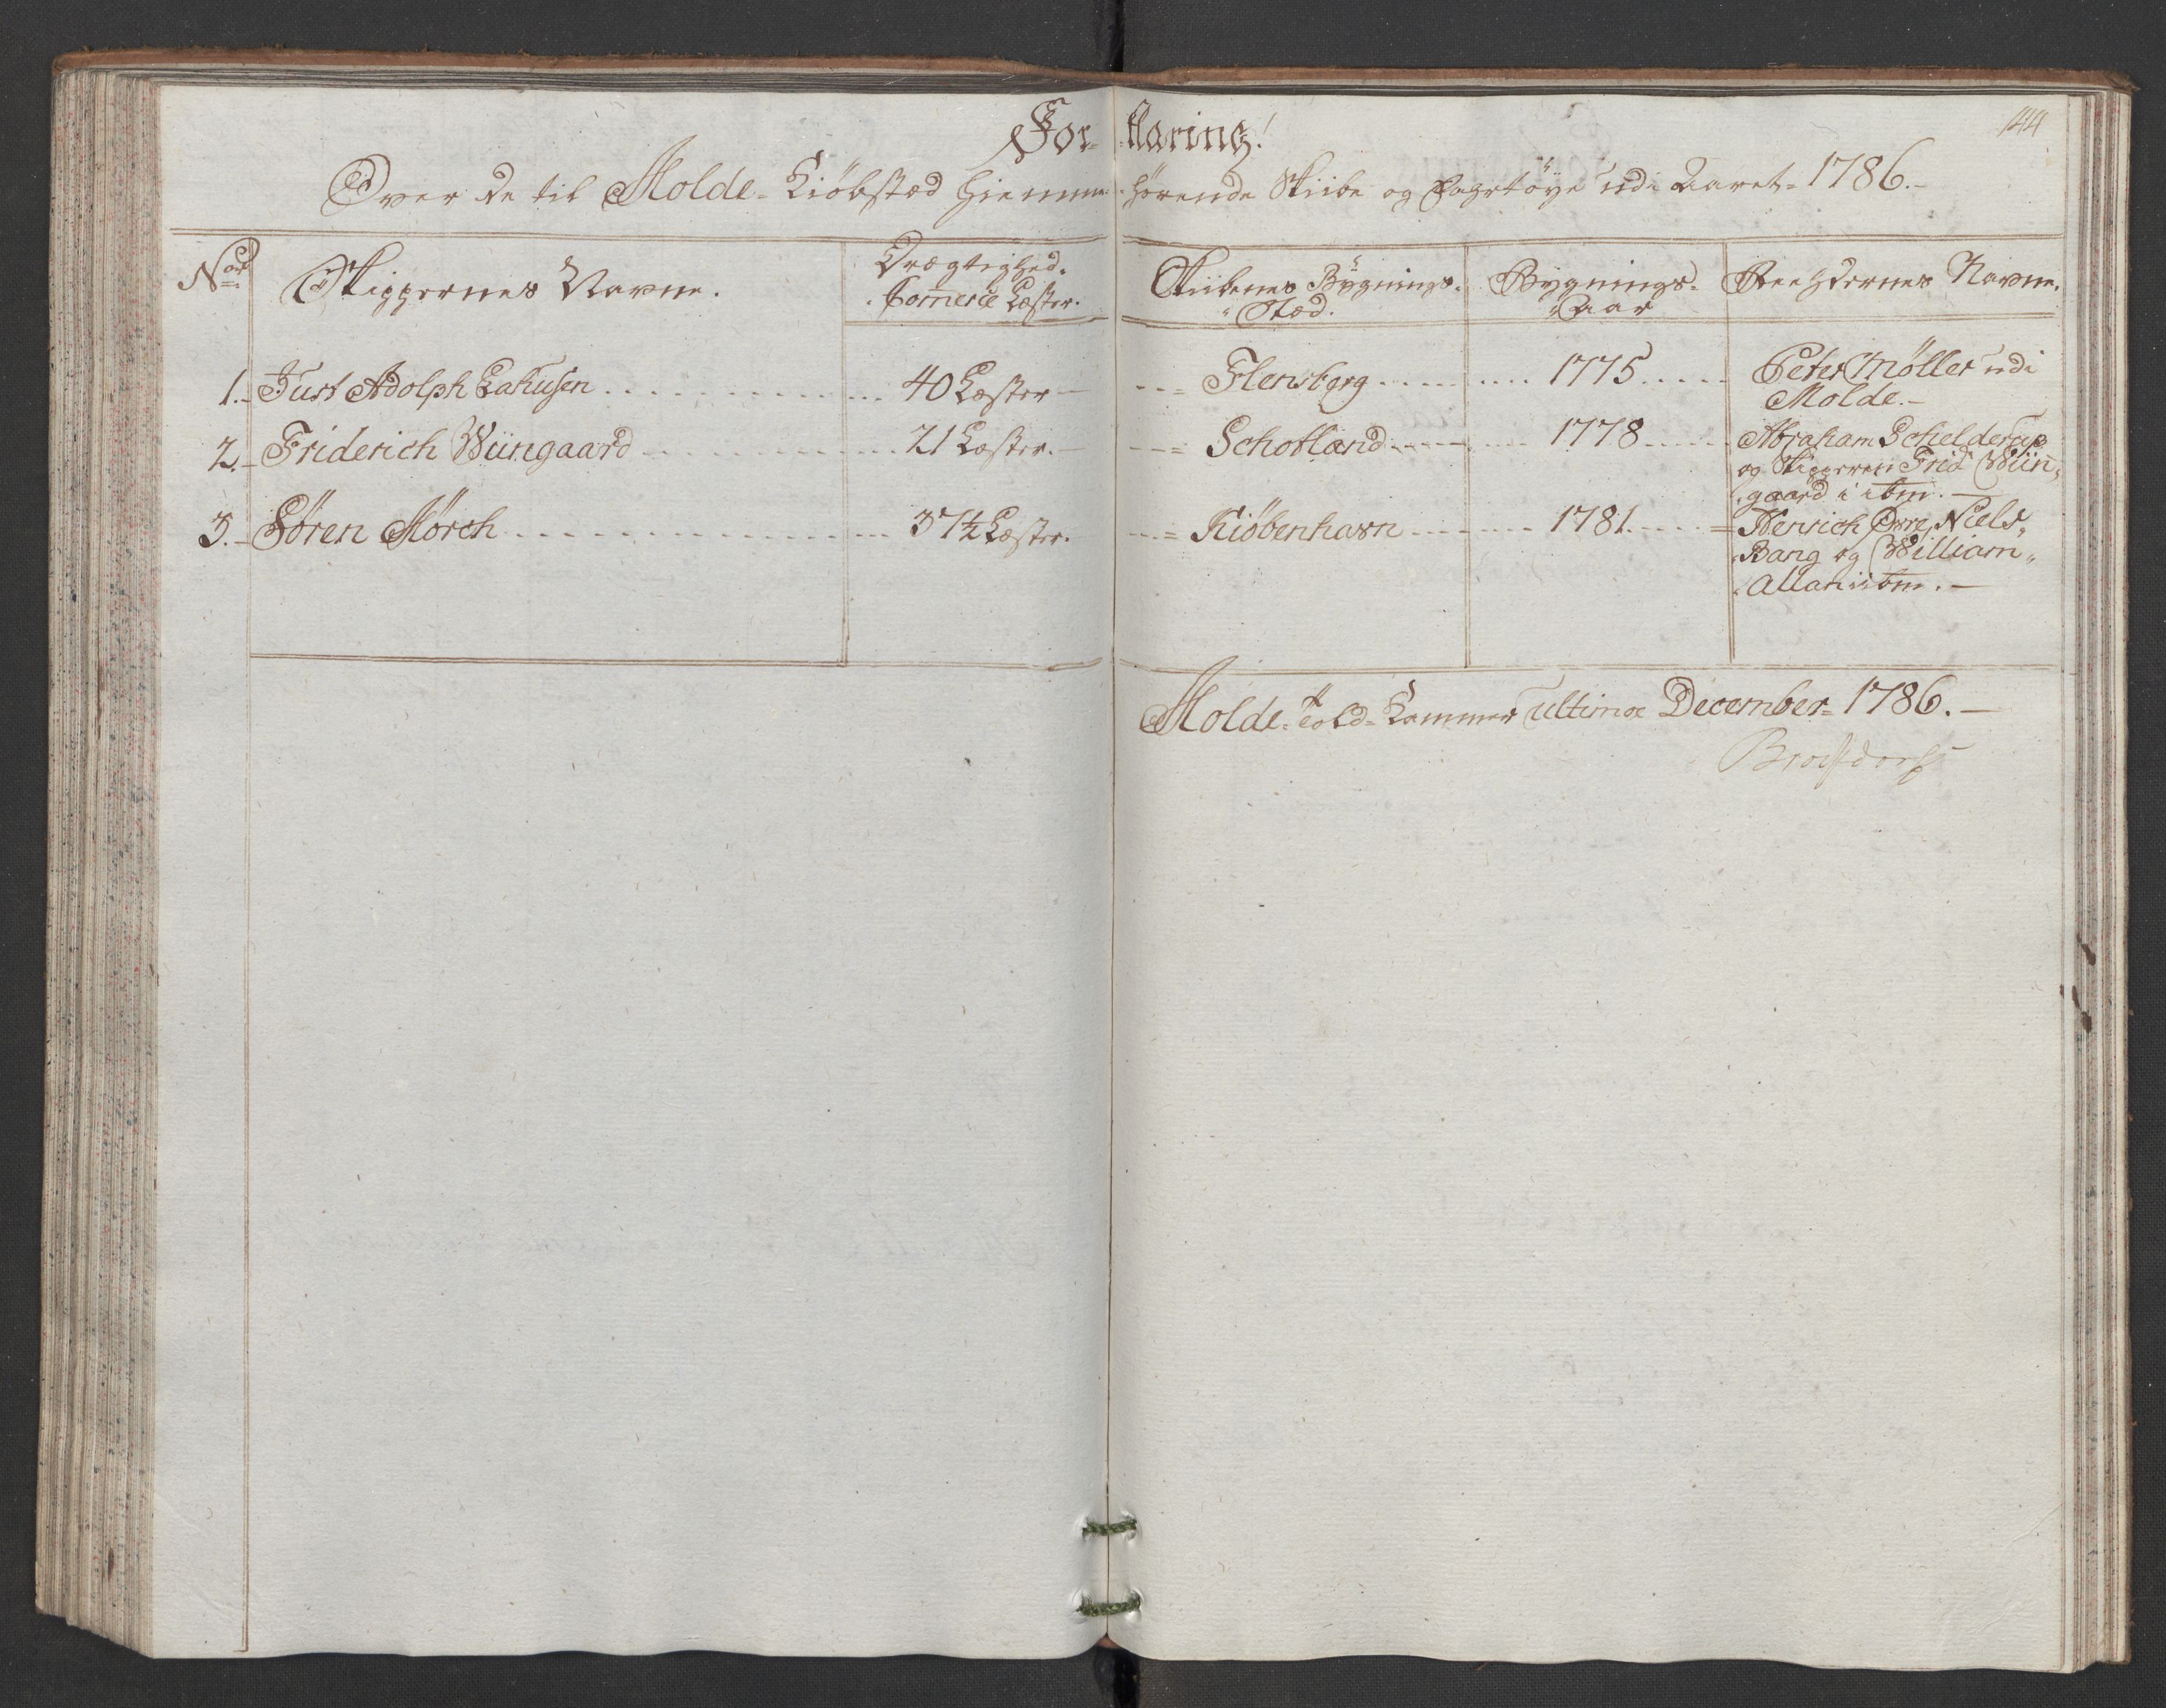 144
For- klaring!
Over de til Molde- Kiöbstæd hiemme- hörende Skiibe og Fahrtöye udi Aaret- 1786.-
No. Skippernes Navne. Drægtighed. Skiibenes Bÿgnings- Bÿgnings- Reehdernes Navne.
Commerce Læster. Stæd. Aar
1.- Just Adolph Lahusen 40 Læster- Flensborg 1775 Peter Møller udi
Molde.-
2.- Friderich Wiingaard 21 Læster.- Schotland 1778 Abraham Schelderup
og Skipperen Frid Wiin-
gaard i ibm.-
3.- Sören Mörch 37½ Læster. Kiöbenhavn 1781. Henrich Örre, Niels
Bang og William
Allan i ibm.-
Molde- Told- Kammer ultimo December- 1786.-